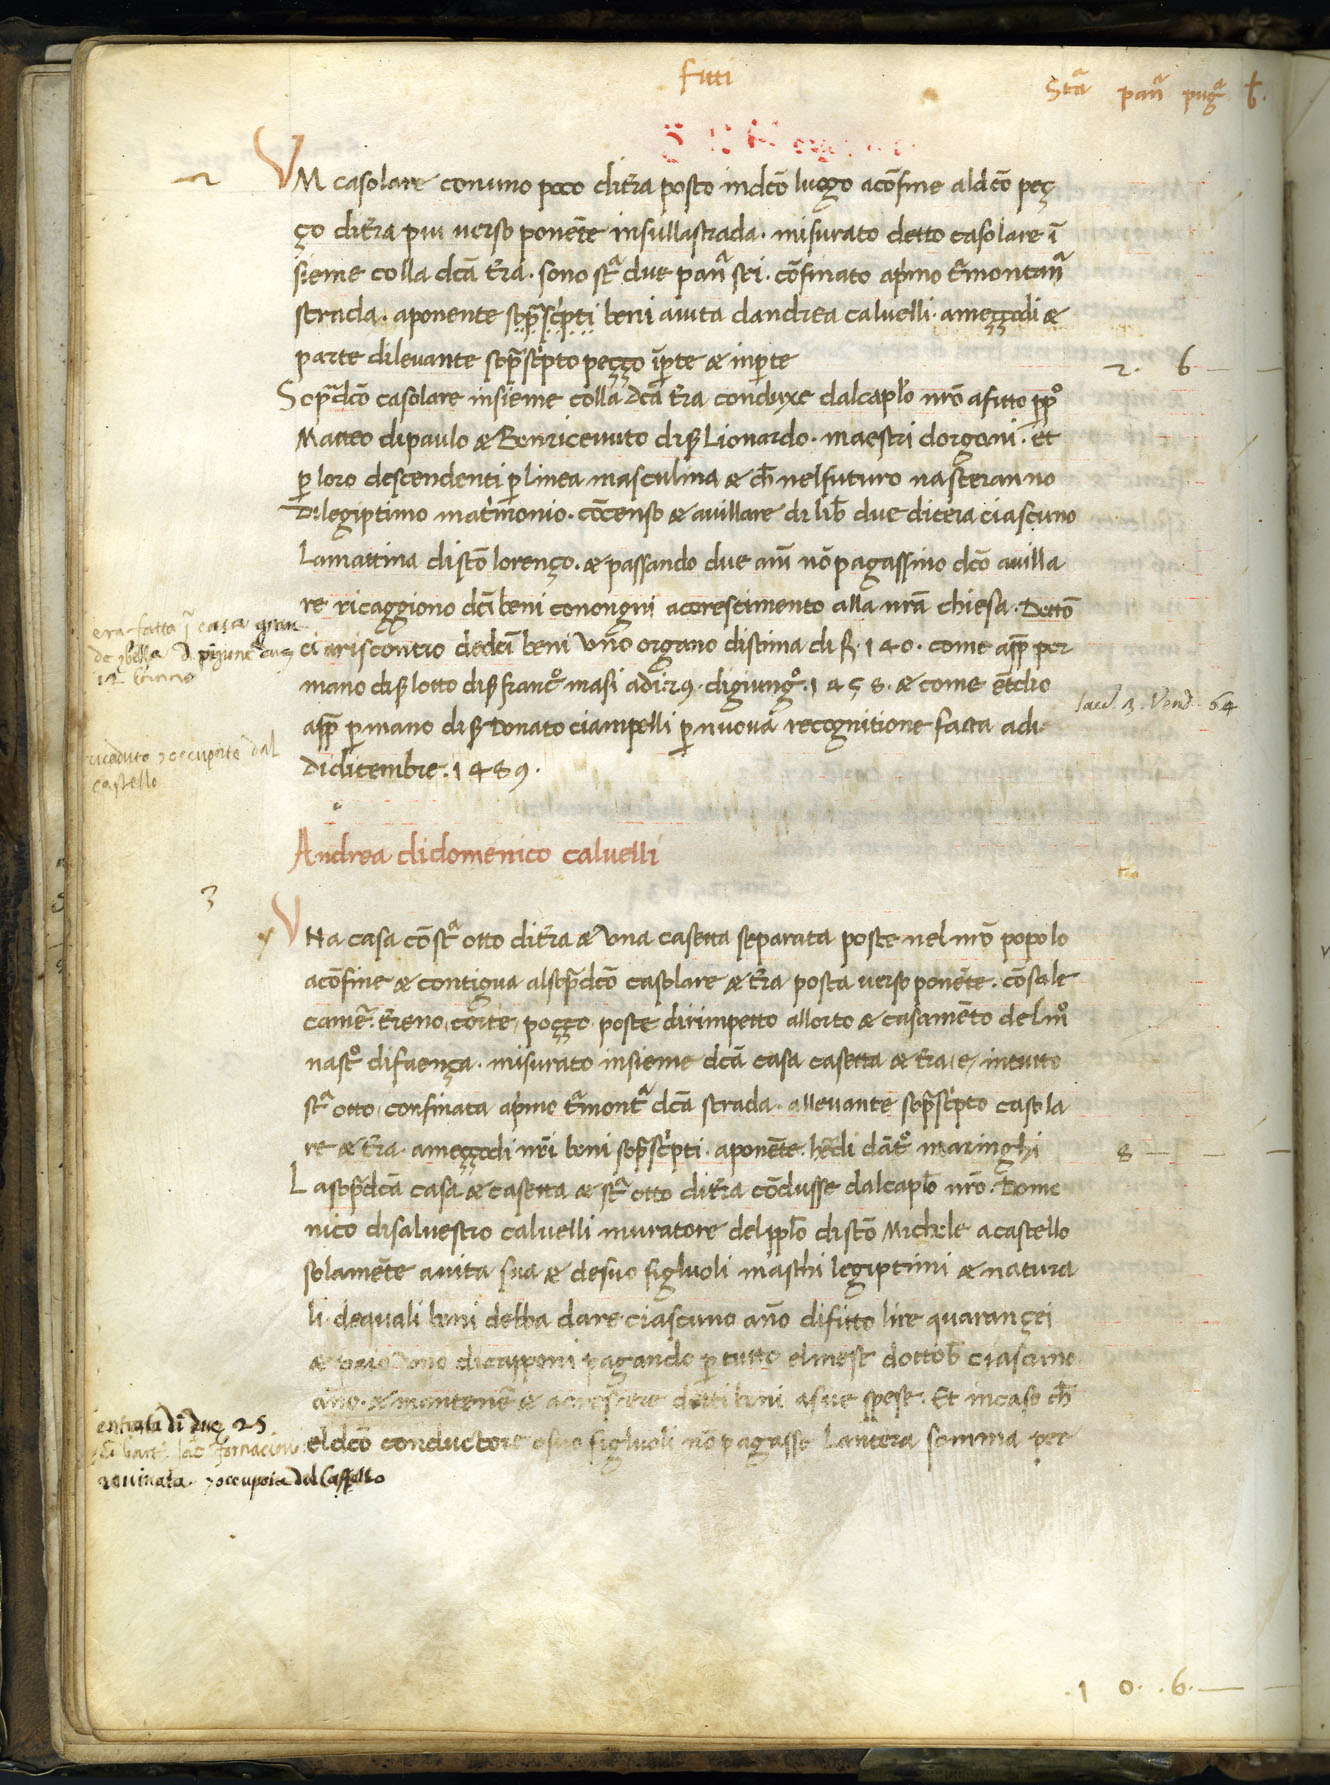 Fitti
Stã panã pugã b.
2
VM casolare conuno poco ditr̃a posto indc̃o luogo acõfine aldc̃o peç
ço ditr̃a piu uerso ponẽte insullastrada · misurato detto casolare ĩ
sieme colla dc̃a tr̃a · sono st.ª due panª sei · cõfinato apimo tr̃montanª
strada · aponente sop̃asc̃pti beni auita dandrea caluelli · ameççodi &
parte dileuante sop̃asc̃pto peçço ĩp̱te & inp̱te
2 · 6
Sop̃adc̃o casolare insieme colla dc̃a tr̃a conduxe dalcaplõ nrõ afitto pp̱º
Matteo dipaulo & Benriceuuto diß Lionardo · maestri dorgani · et
p̱ loro descendenti p̱ linea masculina & ch̃ nelfuturo nasceranno
Dilegiptimo matrimonio · cõcenso & auillare di lib̃ due dicera ciascuno
Lamattina discõ lorenço · & passando due anñi nõpagassino dc̃o auilla
re ricaggiono dc̃i beni conongni acorescimento alla nrã chiesa · Dettõ
ci ariscontro dedc̃i beni vño organo distima di f. 140 · come app̱ per
mano diß lotto diß franc.º masi adi 29 · digiung.º 1458 · & come ẽtdio
app̱ p̱ mano diß Donato ciampelli p̱ nuoua recognitione facta adi ·
Didicembre · 1489 ·
era fatta ĩ casa gran
de &bella
ricaduto &occupato dal
castello
64
Andrea didomenico caluelli
3
VNa casa cõst.ª otto ditr̃a & vna casetta separata poste nel nrõ popolo
acõfine & contigua alsop̃adc̃o casolare & tr̃a posta uerso ponẽte · cõsale
camer̃ · tr̃eno, corte, poçço poste dirimpetto allorto & casamẽto delm̊
nast.º difaença · misurato insieme dc̃a casa casetta & tr̃a, e, intutto
st.ª otto, confinata apimo tr̃mont.ª dc̃a strada · alleuante sop̃asc̃pto casola
re & tr̃a · ameççodi nrĩ beni sop̃asc̃pti · aponẽte · hr̃edi dãt.º maringhi
8
Lasop̃adc̃a casa & casetta & st.ª otto ditr̃a cõdusse dalcaplõ nrõ · Dome
nico disaluestro caluelli muratore delpplõ discõ Michele acastello
solamẽte auita sua & desuo figluoli maschi legiptimi & natura
li · dequali beni debba dare ciascuno año difitto lire quarançei
& paio vno dicapponi pagando p̱ tutto elmese dottob̃ ciascuno
año · & mantenẽ & acrescere detti beni asue spese · Et incaso ch̃
eldc̃o conductore osuo figluoli nõ pagasse Lantera somma per
entrata di duc 25
rouinata · &occupata dal Castello
· 1 0 · 6 ·